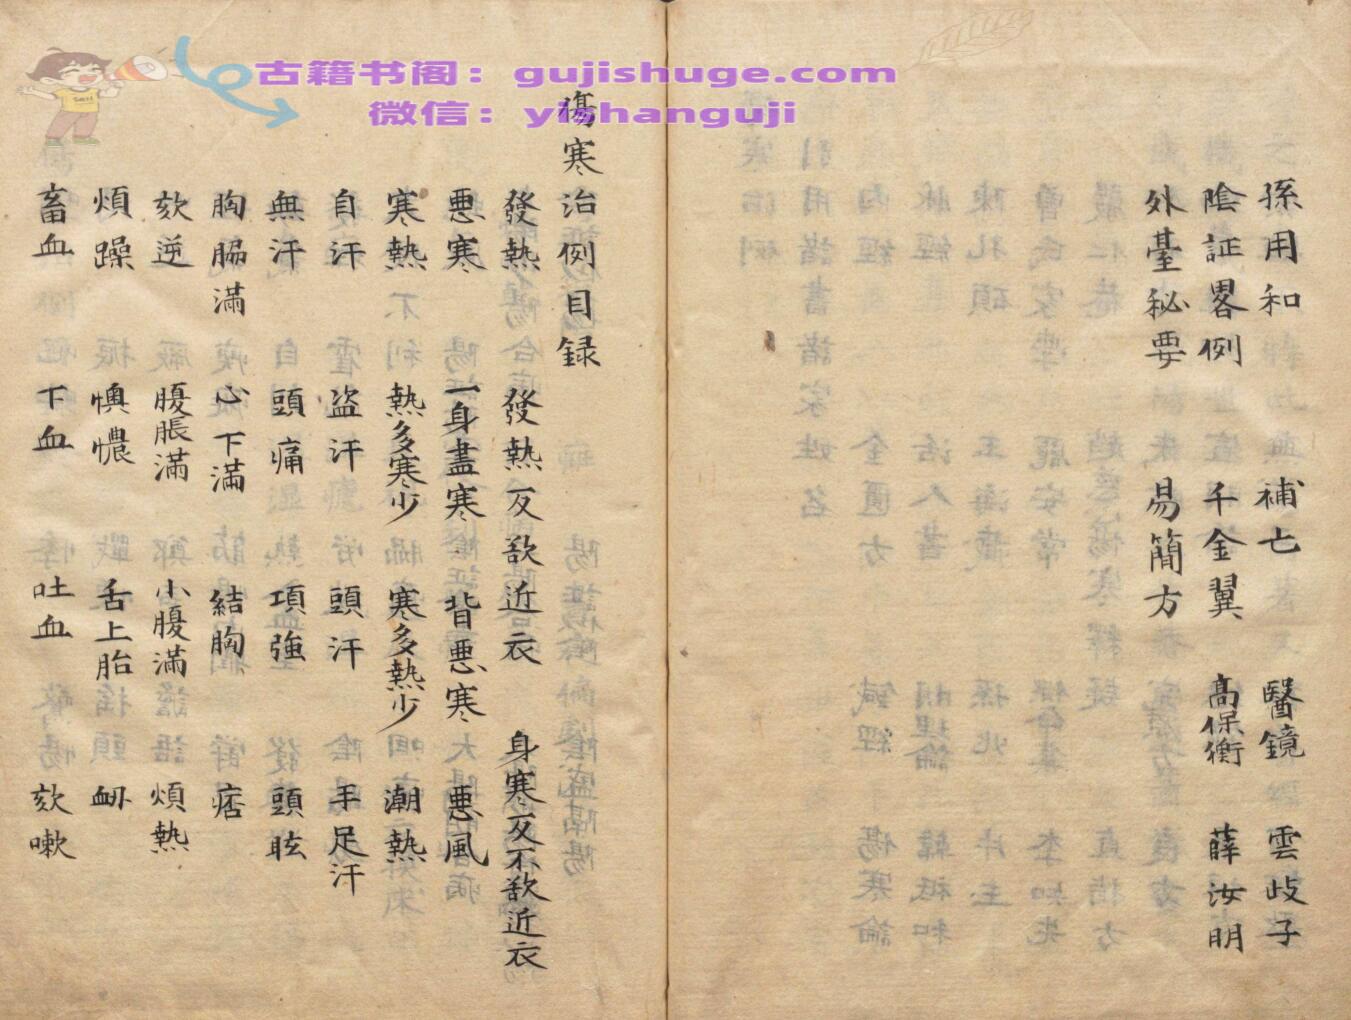 古籍书阁：gujishuge.com
微信：yishanguji
孫用和 補亡 醫鏡 雲歧子
陰証畧例 千金翼 高保衡 薛汝明
外臺秘要 易簡方
傷寒治例目録
發熱 發熱反欲近衣 身寒反不欲近衣
悪寒 一身盡寒 背悪寒 悪風
寒熱 熱多寒少 寒多熱少 潮熱
自汗 盜汗 頭汗 手足汗
無汗 頭痛 項強 頭眩
胸脇滿 心下滿 結胸 痞
欬逆 腹脹滿 小腹滿 煩熱
煩躁 懊憹 舌上胎 衂
畜血 下血 吐血 欬嗽